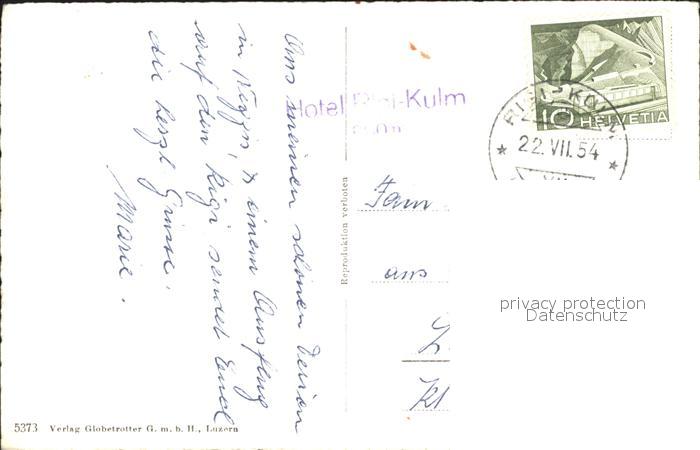 Aus meinen schönen Ferien
in Weggis & einem Ausflug
auf den Rigi sendet Euch
die herzl. Grüsse.
Marie.
5373 Verlag Globetrotter G. m. b. H., Luzern
Reproduktion verboten
Hotel Rigi-Kulm
RIGI-KULM
22.VII.54
10 HELVETIA
Fam.
aus
Kl
privacy protection
Datenschutz